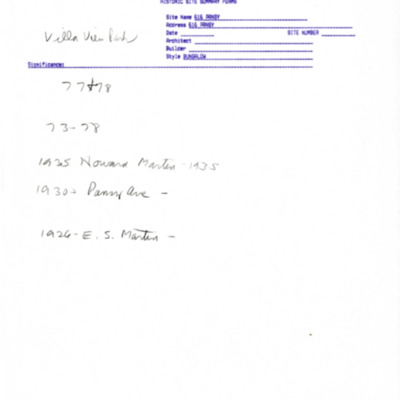 HISTORIC SITE SUMMARY FORMS
Site Name 616 PANSY
Address 616 PANSY
Date SITE NUMBER
Architect
Builder
Style BUNGALOW
Villa View Park
Significance:
77+78
73-78
1925 Howard Martin - 1935
1930 Pansy Ave -
1926 - E. S. Martin -